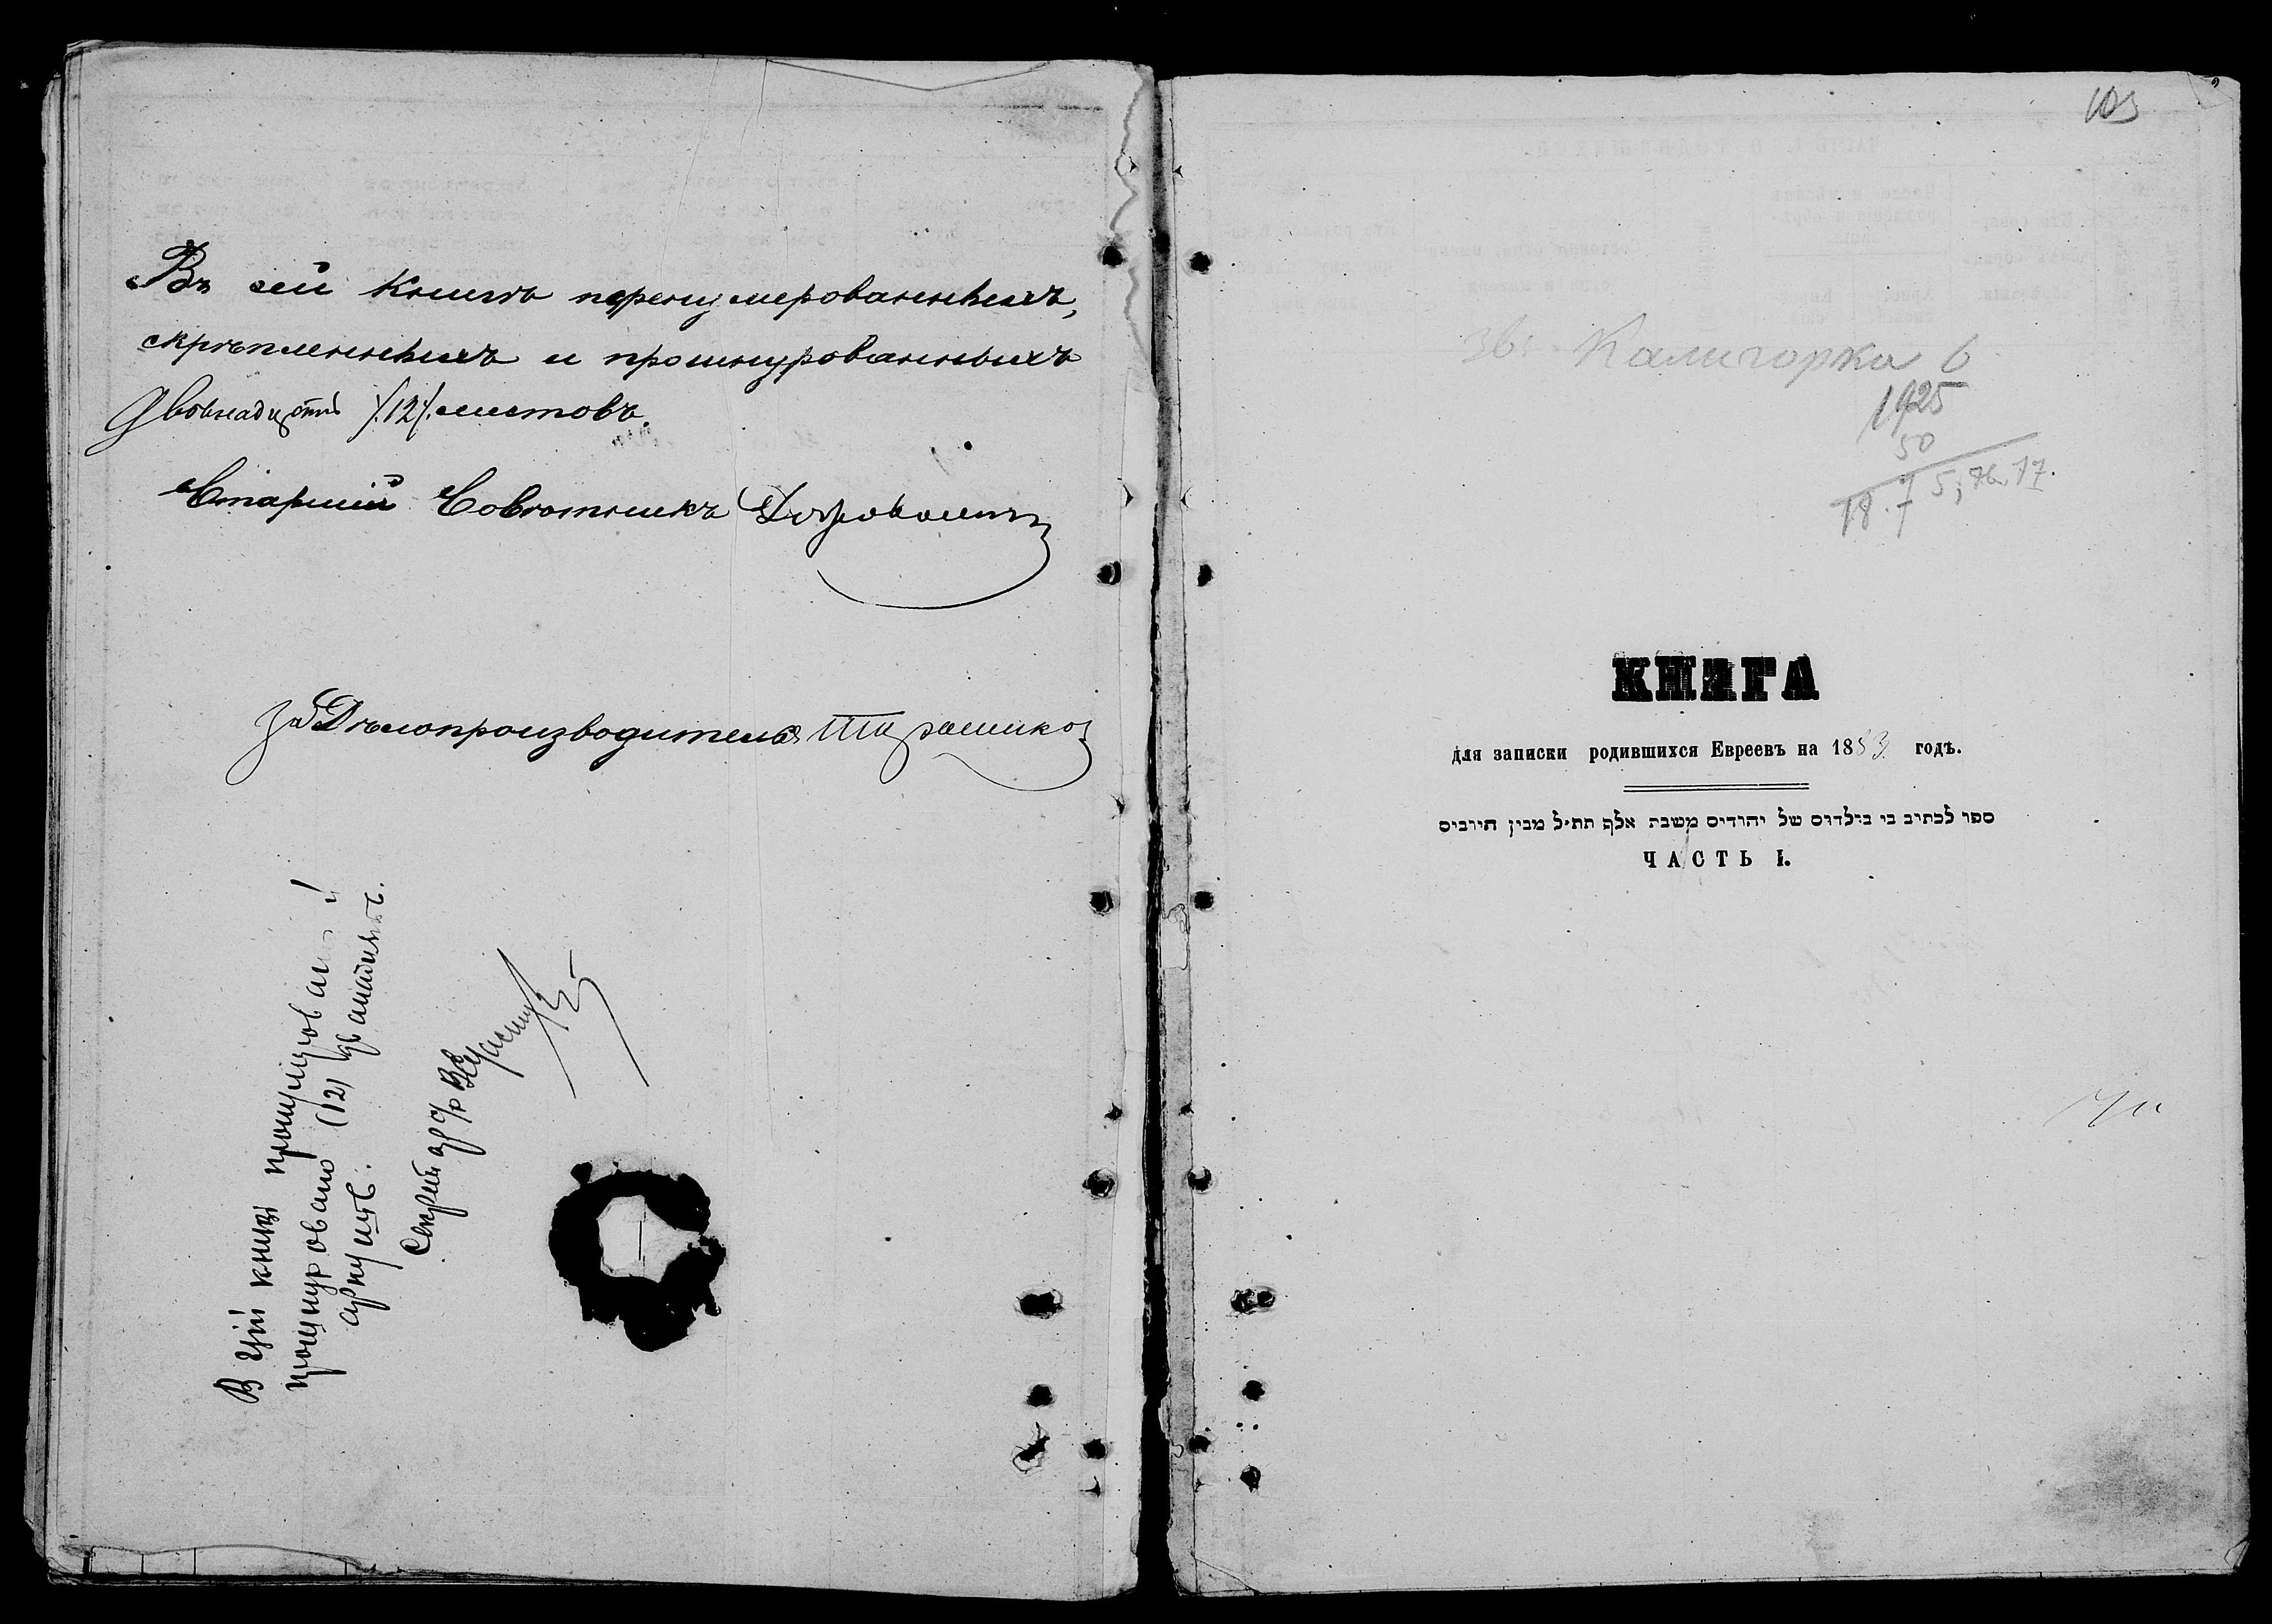 Въ сей Книгѣ перенумерованныхъ,
скрѣпленныхъ и прошнурованныхъ
Двѣнадцать /.12/. листовъ.
Старшій Совѣтникъ
За Дѣлопроизводителя
В цій книзі пронумеровано і
прошнуровано (12) дванадцять
аркушів.
Секрет
103
Калигорка 6
1925
50
18.7 5, 76, 77.
КНИГА
для записки родившихся Евреевъ на 1883 годъ.
ספר לכתיב בי בילדוס של יהודיס משבת אלף תת״ל מבין היוביס
ЧАСТЬ I.